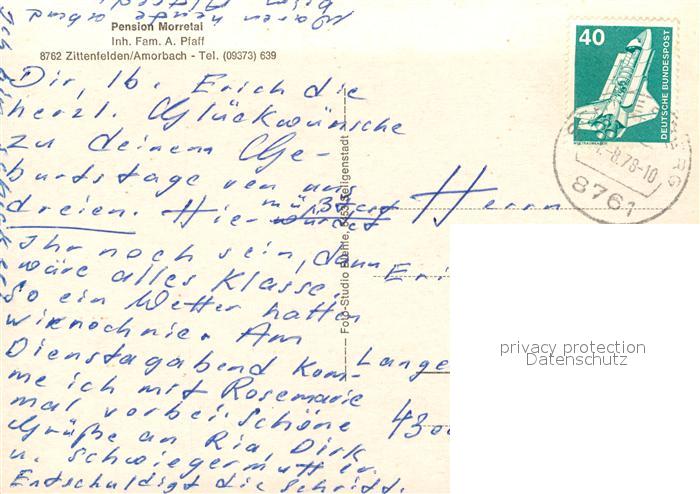 Pension Morretal
Inh. Fam. A. Pfaff
8762 Zittenfelden/Amorbach - Tel. (09373) 639
Dir, lb. Erich die
herzl. Glückwünsche
zu deinem Ge-
burtstage von uns
dreien. Hier müßtet
Ihr noch sein, dann
wäre alles Klasse.
So ein Wetter hatten
wir noch nie. Am
Dienstagabend kom-
me ich mit Rosemarie
mal vorbei. Schöne
Grüße an Ria Dirk
u. Schwiegermutter.
Entschuldigt die Schrift.
Foto-Studio 6453 Seligenstadt
40
DEUTSCHE BUNDESPOST
-8.78-10
8761
Herrn
Eri
Lange
4300
privacy protection
Datenschutz